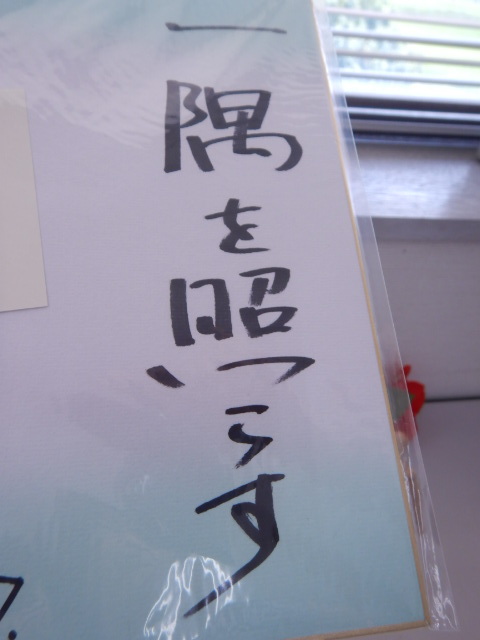 一隅を照らす